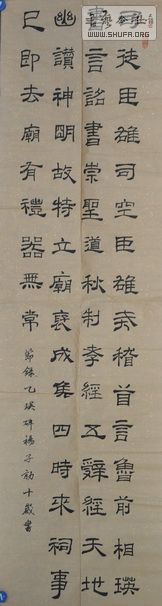 司徒臣雄司空臣雄戒稽首言魯前相瑛
書言詔書崇聖道秋制孝經五辭經天地
幽讚神明故特立廟褒成侯四時來祠事
已即去廟有禮器無常
節錄乙瑛碑楊子十歲書
WWW.SHUFA.ORG